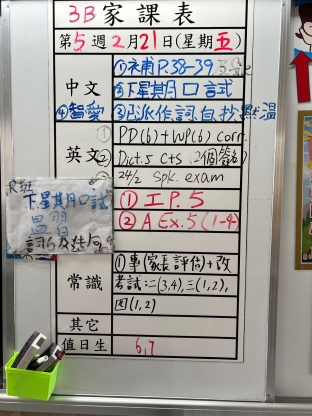 3B家課表
第5週2月21日(星期五)
中文
①補P.38-39
②下星期口試
④智愛 ③派作詞自抄默溫
英文
① PD(6)+WP(6) corr.
② Dict.5 cts (2個簽名)
③ 24/2 Spk. exam
① I P.5
② A Ex.5 (1-4)
下星期口試
詞
常識
①專(家長評估)+改
考試:二(3,4),三(1,2),
四(1,2)
其它
值日生 6,7